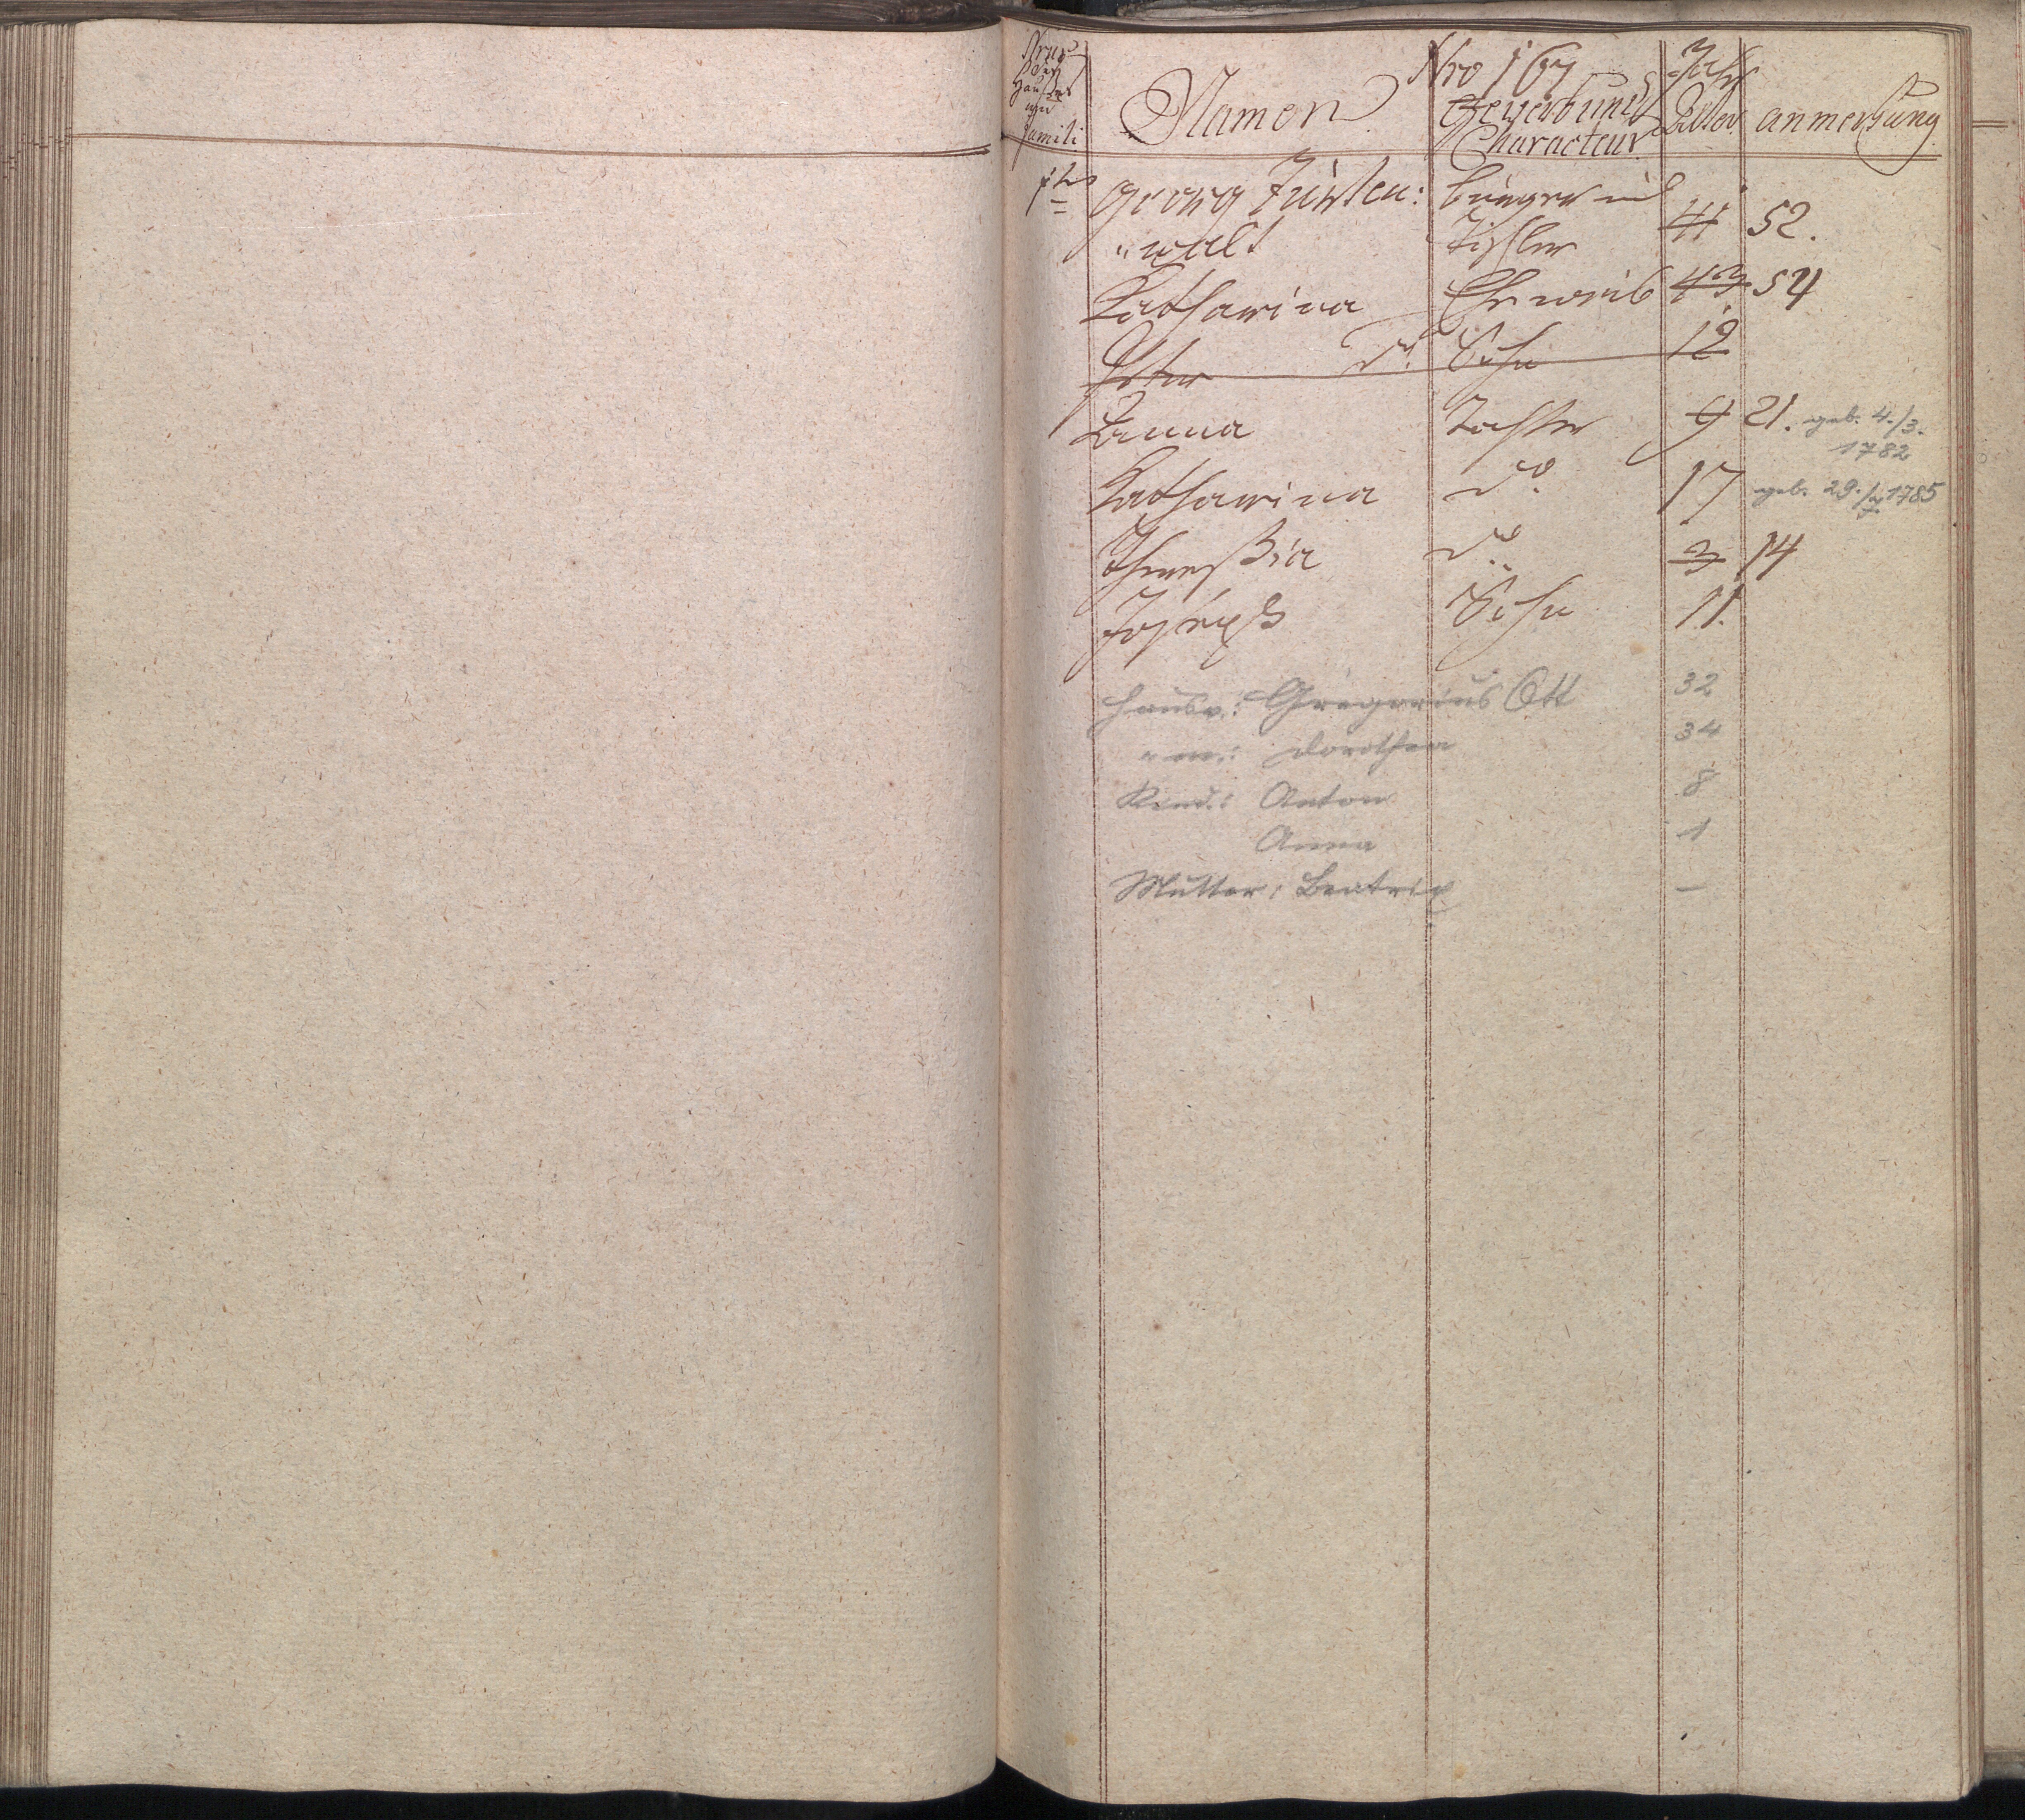 Nrus
des
Hauses
und
Famili
Namen
Nro 167
Gewerb und
Characteur
Jahr
Alter
anmerkung
1te Georg Fürsten: burger und
"walt Tischler 41 52.
Katharina Eheweib 43 54
Peter d. Sohn 12
Anna Tochter 9 21. geb. 4./3.
1782
Katharina do. 17 geb. 29./7 1785
Theresia do. 3 14
Joseph Sohn 11.
Hausv.: Gregorius Ott 32
" m.: Dorothea 34
Kind.: Anton 8
Anna 1
Mutter: Beatrix –